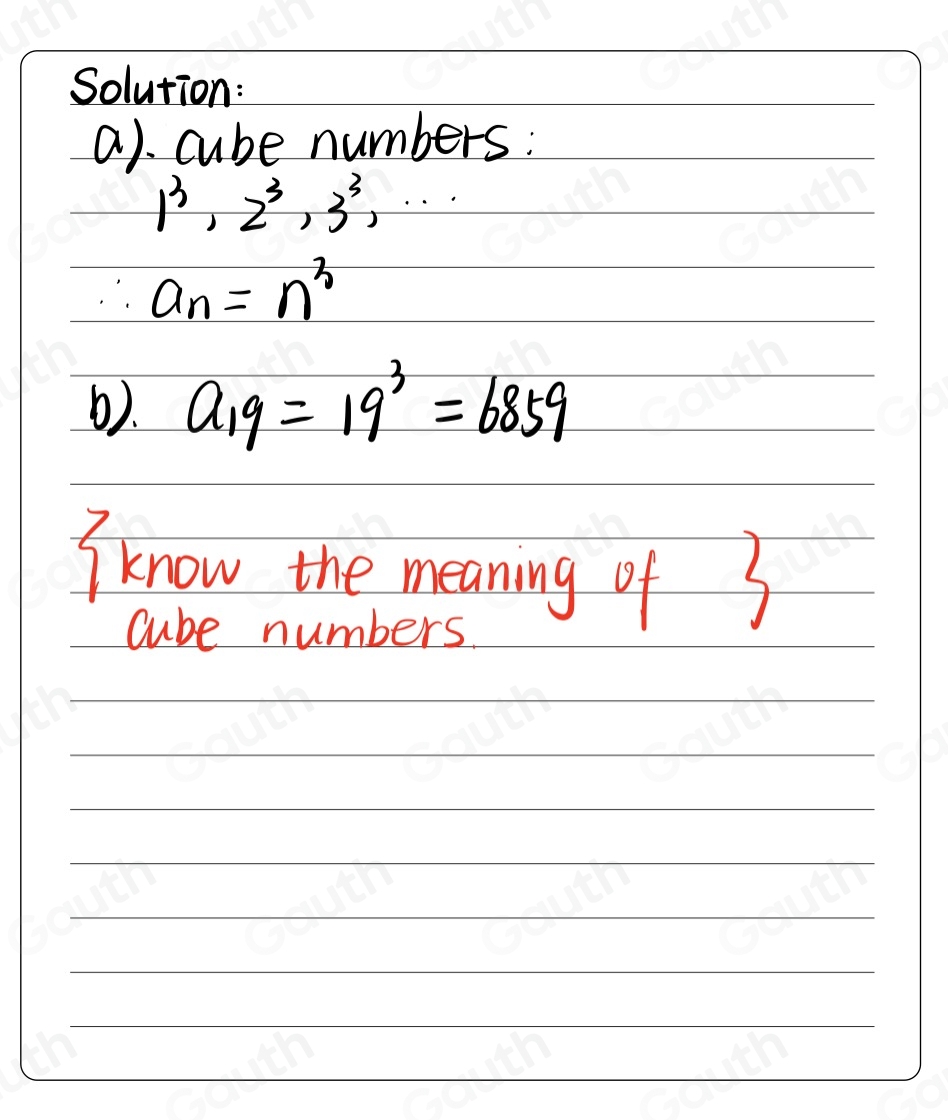 Solution:
a). cube numbers:
1³, 2³, 3³, ...
∴ aₙ = n³
b). a₁₉ = 19³ = 6859
{know the meaning of }
cube numbers.